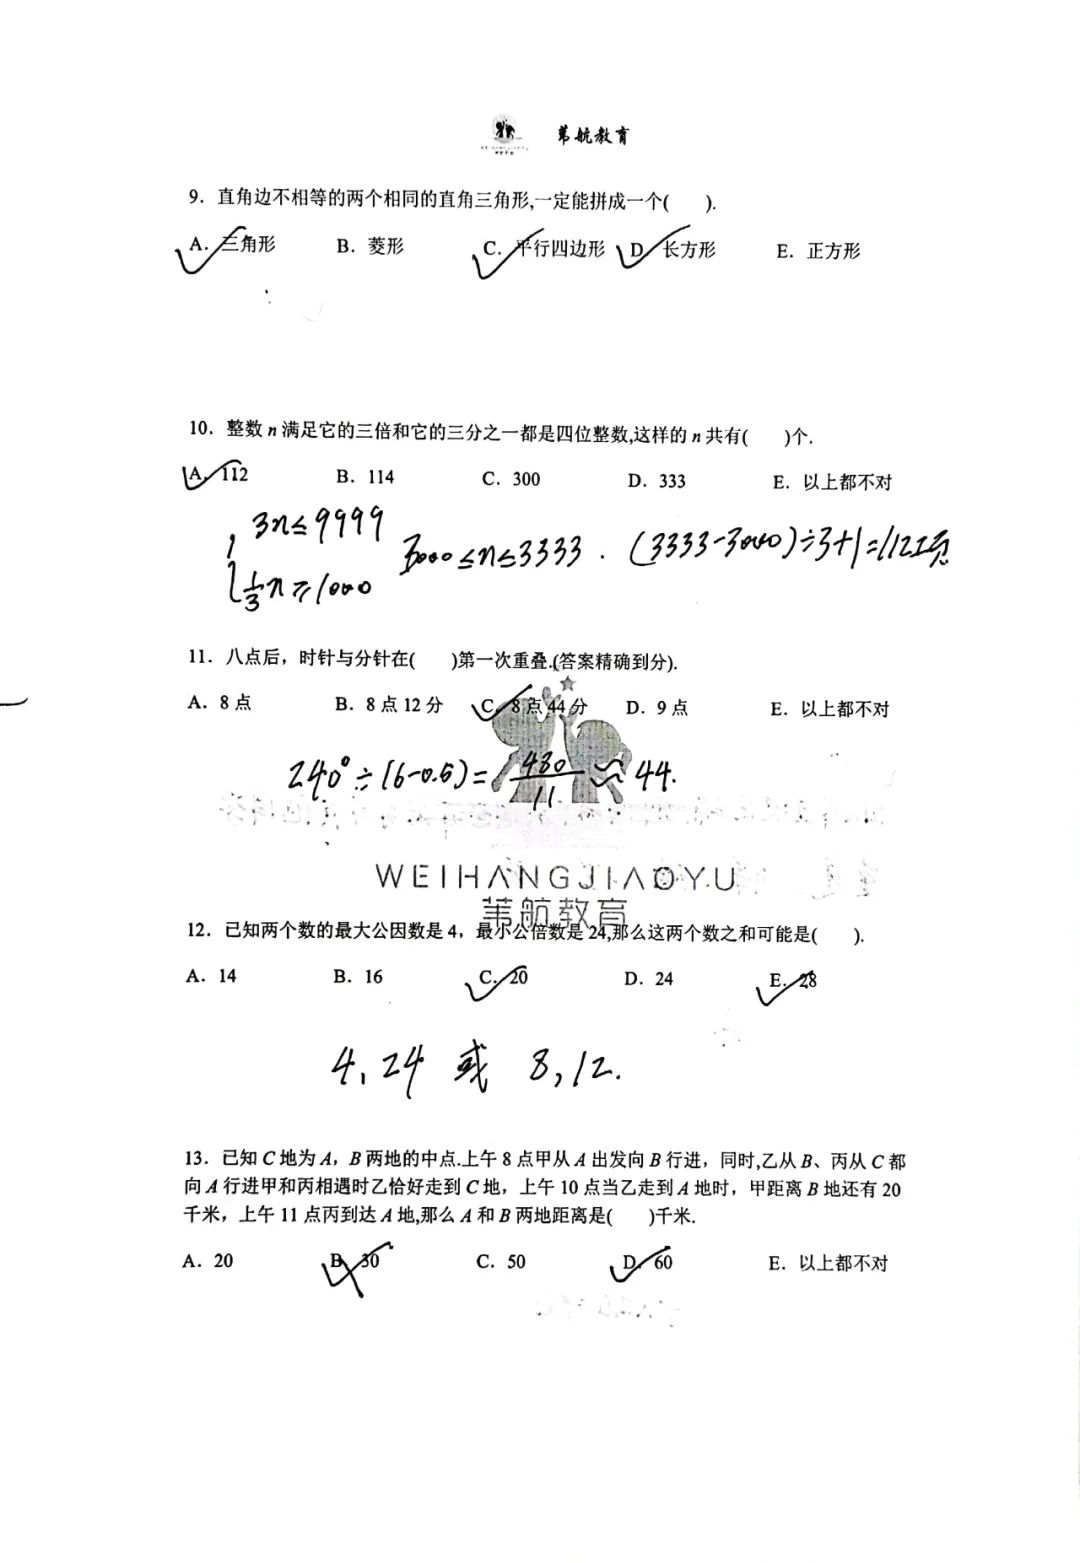 苇航教育
9．直角边不相等的两个相同的直角三角形,一定能拼成一个(　　).
A．三角形　B．菱形　C．平行四边形　D．长方形　E．正方形
10．整数 n 满足它的三倍和它的三分之一都是四位整数,这样的 n 共有(　　)个.
A．112　B．114　C．300　D．333　E．以上都不对
3n≤9999
3000≤n≤3333．(3333-3000)÷3+1=112项
1/3 n≥1000
11．八点后，时针与分针在(　　)第一次重叠.(答案精确到分).
A．8 点　B．8 点 12 分　C．8 点 44 分　D．9 点　E．以上都不对
240°÷(6-0.5)=480/11≈44.
WEIHANGJIAOYU
苇航教育
12．已知两个数的最大公因数是 4，最小公倍数是 24,那么这两个数之和可能是(　　).
A．14　B．16　C．20　D．24　E．28
4,24 或 8,12.
13．已知 C 地为 A，B 两地的中点.上午 8 点甲从 A 出发向 B 行进，同时,乙从 B、丙从 C 都
向 A 行进甲和丙相遇时乙恰好走到 C 地，上午 10 点当乙走到 A 地时，甲距离 B 地还有 20
千米，上午 11 点丙到达 A 地,那么 A 和 B 两地距离是(　　)千米.
A．20　B．30　C．50　D．60　E．以上都不对